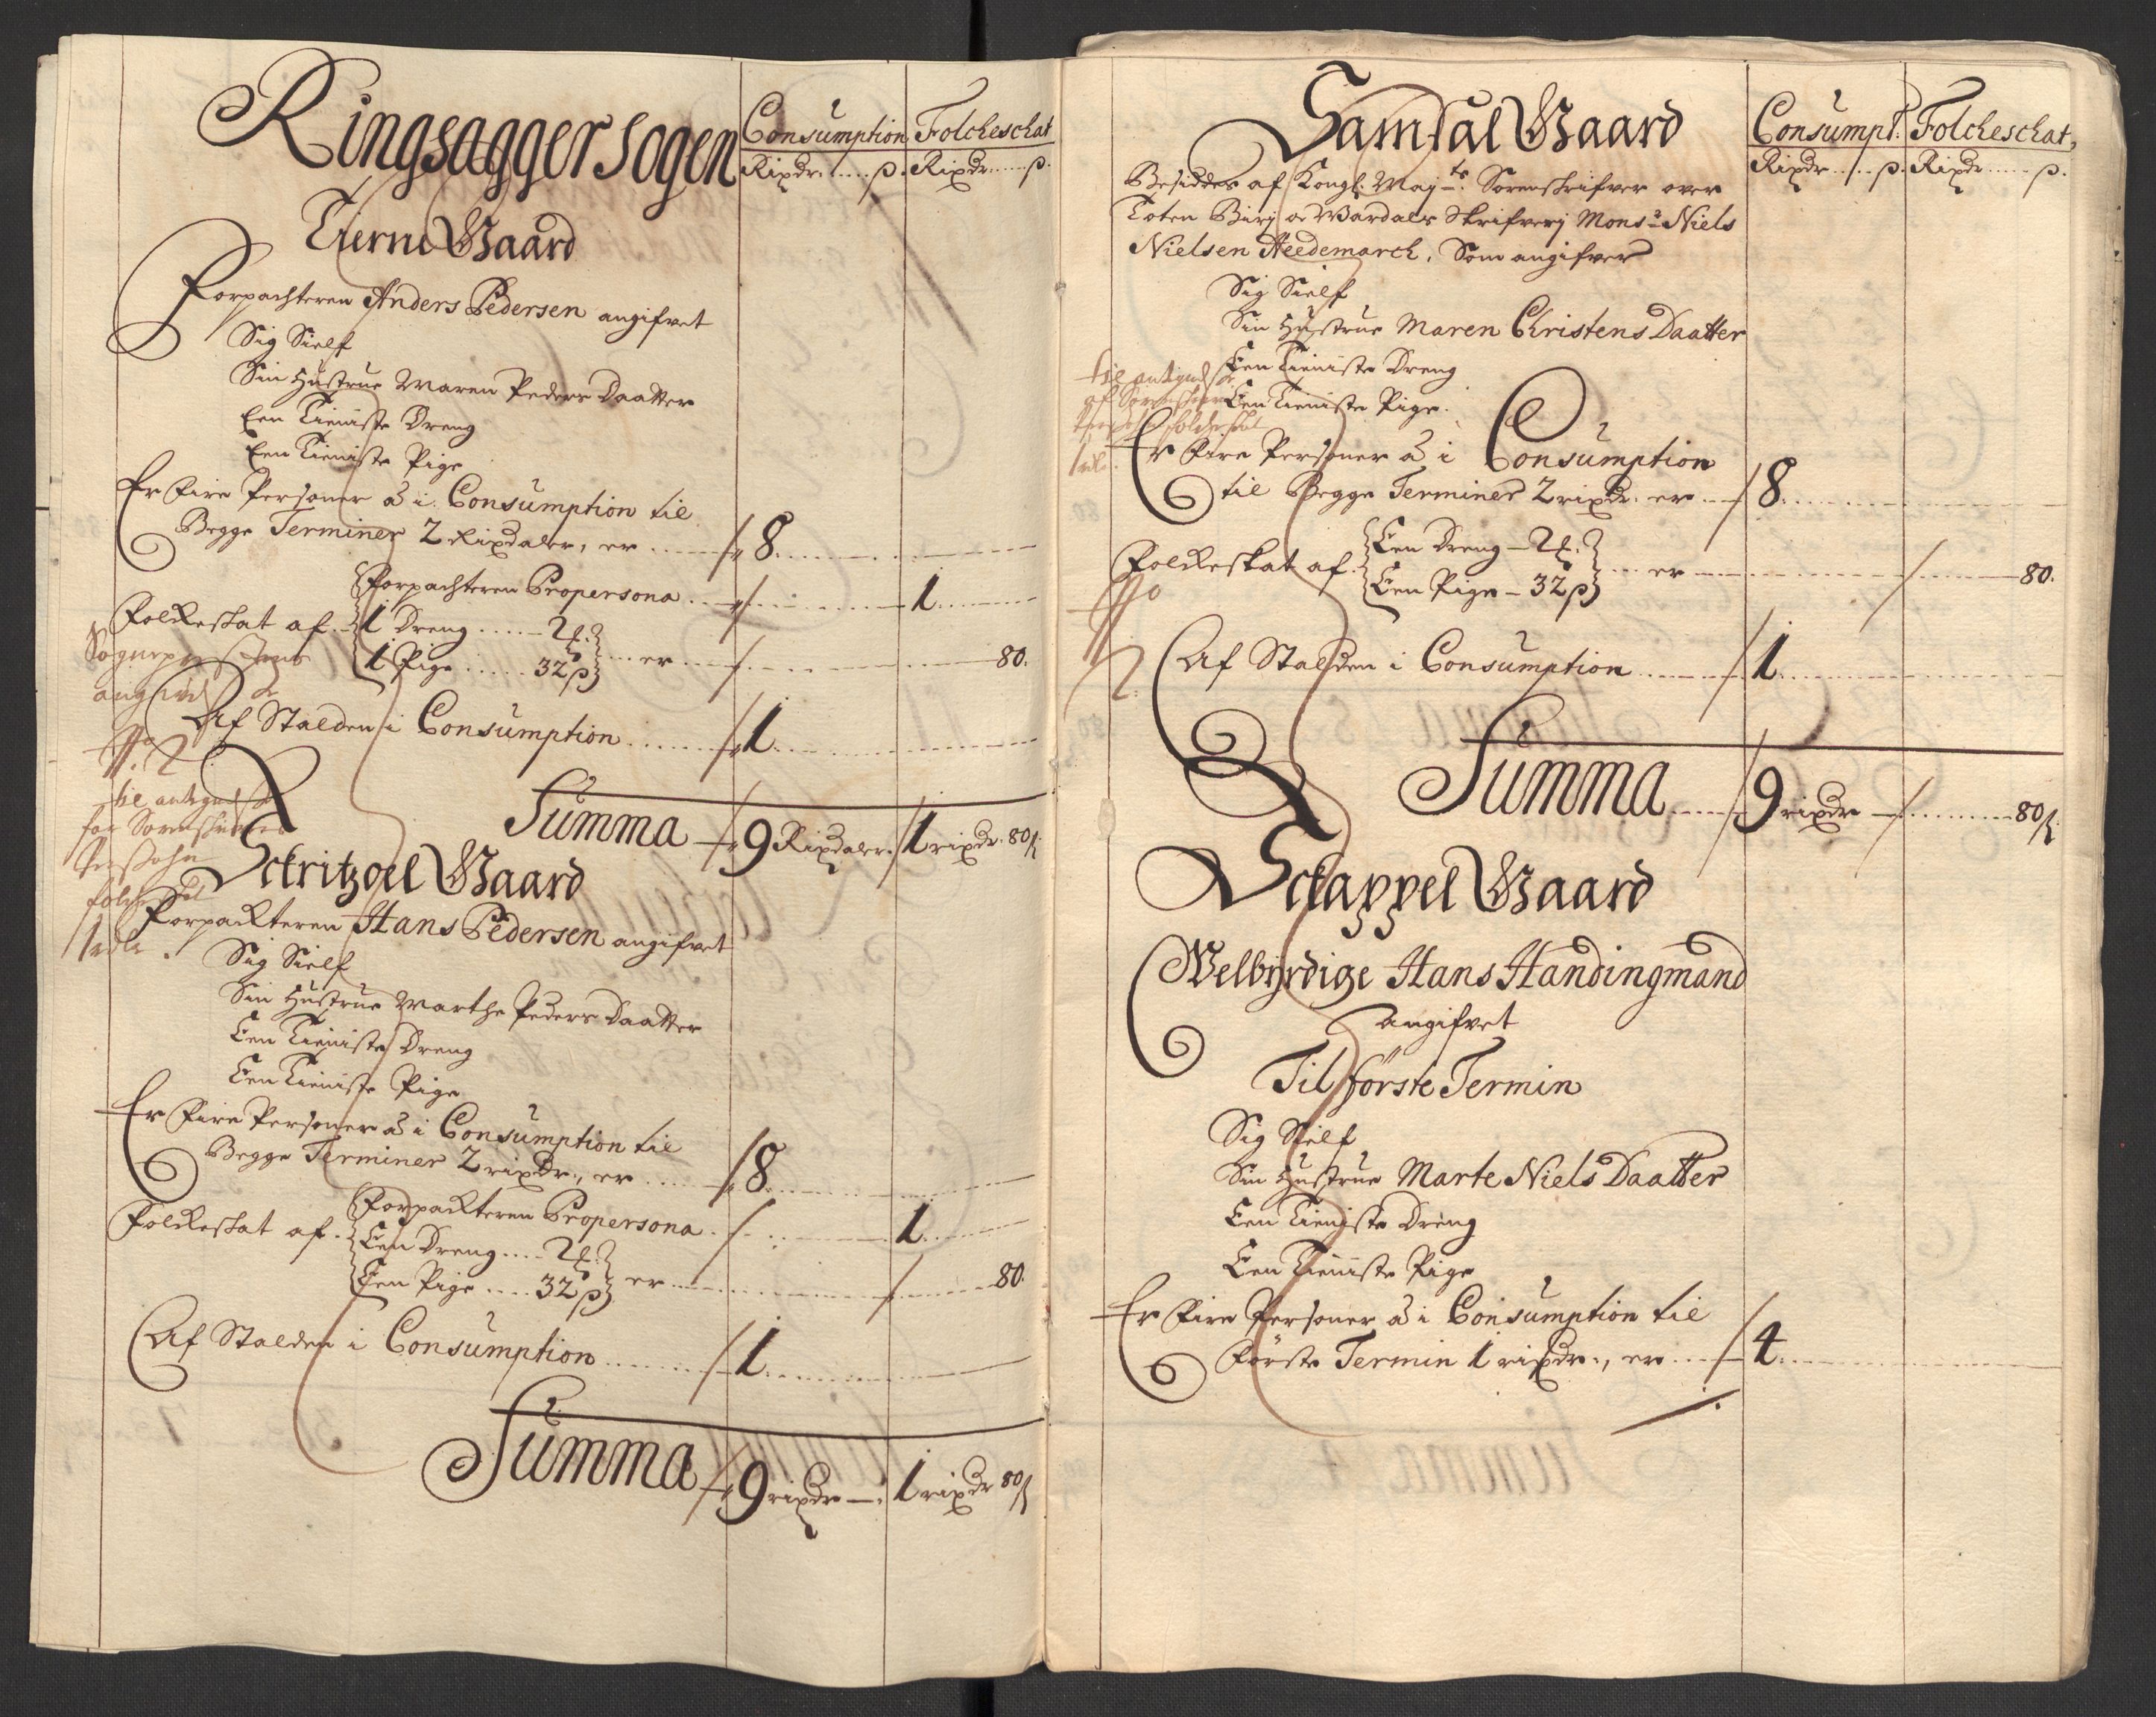 Ringsagger Sogen
Consumption Folcheschat
Rixdr. ß. Rixdr ß.
Tierne Gaard
Forpachteren Anders Pedersen angifvet
Sig Sielf
Sin Hustrue Maren Peders Daatter
Een Tieniste Dreng
Een Tieniste Pige
Er fire Personer á i Consumption til
Begge Terminer 2 Rixdaler, er 8.
Forpachteren Propersona 1
Folkeskat af. 1 Dreng 2 
1 Pige 32 ß er 80.
Af Stalden i Consumption 1
Summa 9 Rixdaler. 1 rixdr. 80 ß
til
for Sorenskrifver
1 rdlr.
Schritzoel Gaard
Forpackteren Hans Pedersen angifvet
Sig Sielf
Sin Hustrue Marthe Peders Daatter
Een Tieniste Dreng
Een Tieniste Pige
Er fire Personer á i Consumption til
Begge Terminer 2 rixdr., er 8
Forpackteren Propersona 1
Folkeskat af. Een Dreng 2 
Een Pige 32 ß er 80.
Af Stalden i Consumption 1
Summa 9 rixdr 1 rixdr 80 ß
Samsal Gaard
Consumpt: Folcheschat,
Rixdr ß. Rixdr ß.
Besiddes af Kongl: Maj:ts Sorenskrifver over
Toten Birj oc Wardals Skrifverj Monsr Niels
Nielsen Heedemarch, Som angifver
Sig Sielf
Sin Hustrue Maren Christens Daatter
Een Tieniste Dreng
Een Tieniste Pige.
Er fire Personer á i Consumption
til Begge Terminer 2 rixdr. er 8.
Folkeskat af. Een Dreng 2 
Een Pige 32 ß er 80.
Af Stalden i Consumption 1
Summa 9 rixdr 80 ß
Schappel Gaard
Welbyrdige Hans Handingmand
angifvet
Til förste Termin
Sig Sielf
Sin Hustrue Marte Niels Daatter
Een Tieniste Dreng
Een Tieniste Pige
Er fire Personer á i Consumption til
förste Termin 1 rixdr., er 4.